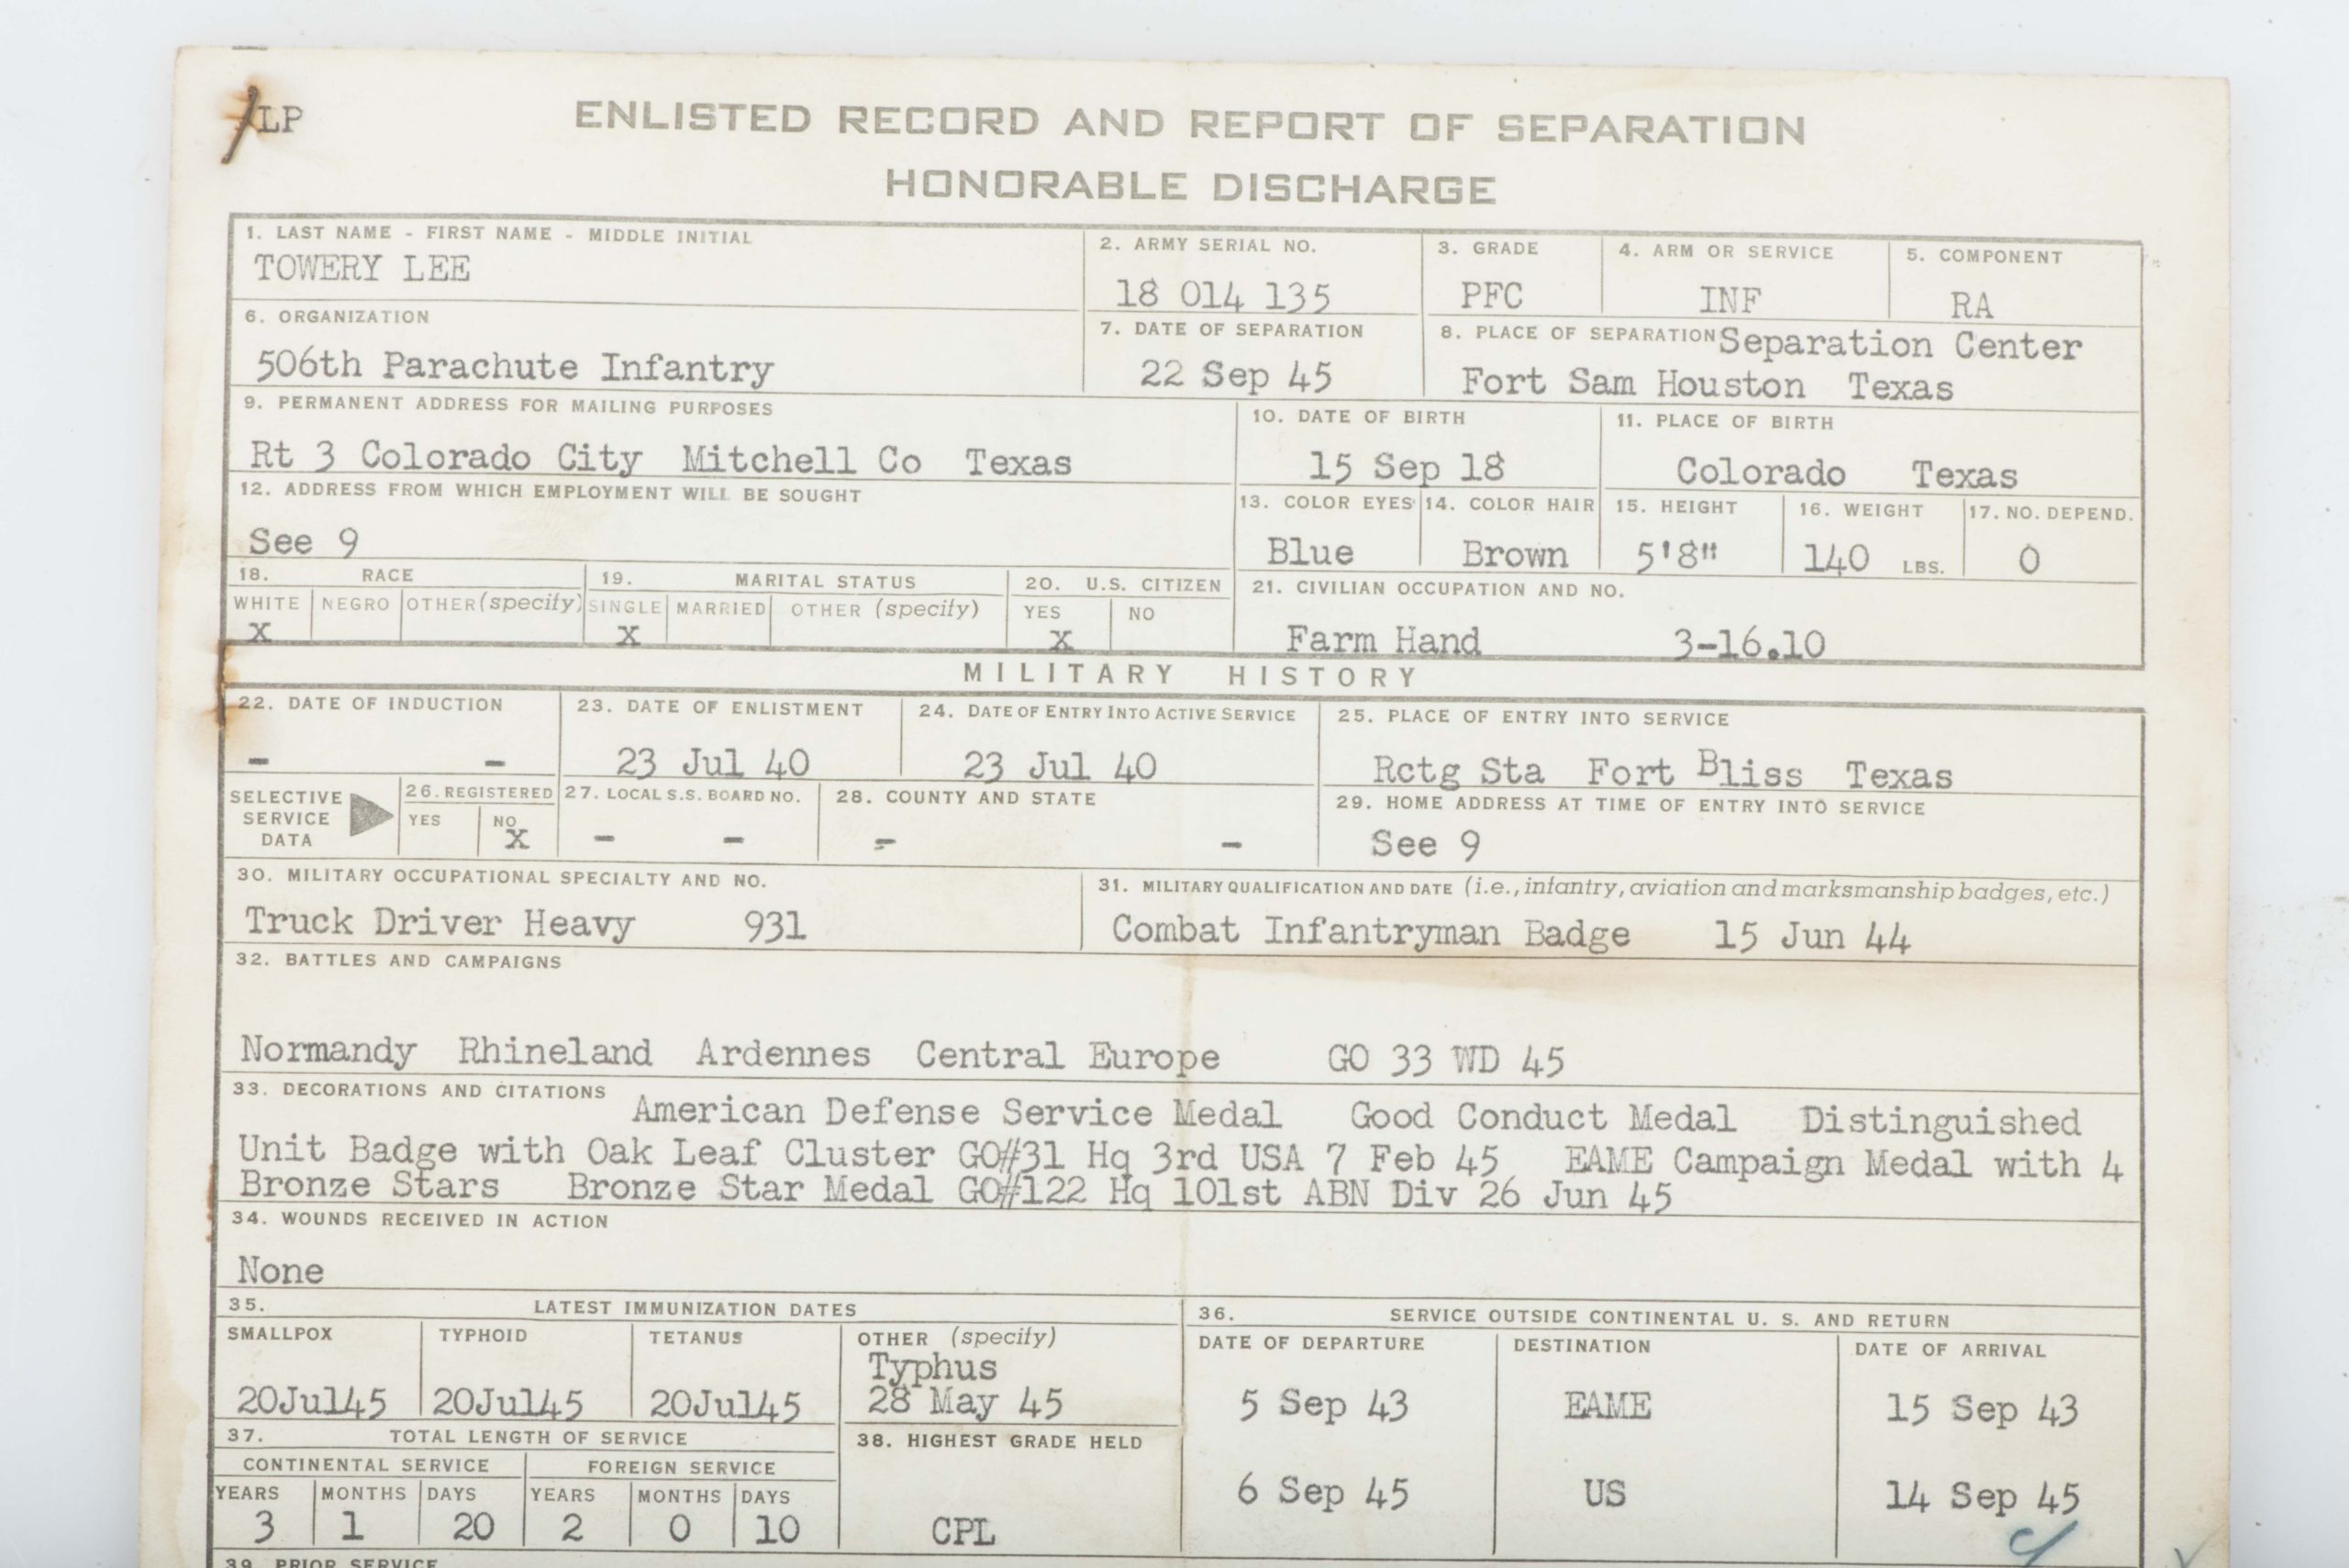 LP
ENLISTED RECORD AND REPORT OF SEPARATION
HONORABLE DISCHARGE
1. LAST NAME - FIRST NAME - MIDDLE INITIAL
TOWERY LEE
2. ARMY SERIAL NO.
18 014 135
3. GRADE
PFC
4. ARM OR SERVICE
INF
5. COMPONENT
RA
6. ORGANIZATION
506th Parachute Infantry
7. DATE OF SEPARATION
22 Sep 45
8. PLACE OF SEPARATION Separation Center
Fort Sam Houston Texas
9. PERMANENT ADDRESS FOR MAILING PURPOSES
Rt 3 Colorado City Mitchell Co Texas
10. DATE OF BIRTH
15 Sep 18
11. PLACE OF BIRTH
Colorado Texas
12. ADDRESS FROM WHICH EMPLOYMENT WILL BE SOUGHT
See 9
13. COLOR EYES
Blue
14. COLOR HAIR
Brown
15. HEIGHT
5'8"
16. WEIGHT
140 LBS.
17. NO. DEPEND.
0
18. RACE
WHITE NEGRO OTHER (specify)
X
19. MARITAL STATUS
SINGLE MARRIED OTHER (specify)
X
20. U.S. CITIZEN
YES NO
X
21. CIVILIAN OCCUPATION AND NO.
Farm Hand 3-16.10
MILITARY HISTORY
22. DATE OF INDUCTION
- -
23. DATE OF ENLISTMENT
23 Jul 40
24. DATE OF ENTRY INTO ACTIVE SERVICE
23 Jul 40
25. PLACE OF ENTRY INTO SERVICE
Rctg Sta Fort Bliss Texas
SELECTIVE
SERVICE
DATA
26. REGISTERED
YES NO
X
27. LOCAL S.S. BOARD NO.
- -
28. COUNTY AND STATE
- -
29. HOME ADDRESS AT TIME OF ENTRY INTO SERVICE
See 9
30. MILITARY OCCUPATIONAL SPECIALTY AND NO.
Truck Driver Heavy 931
31. MILITARY QUALIFICATION AND DATE (i.e., infantry, aviation and marksmanship badges, etc.)
Combat Infantryman Badge 15 Jun 44
32. BATTLES AND CAMPAIGNS
Normandy Rhineland Ardennes Central Europe GO 33 WD 45
33. DECORATIONS AND CITATIONS
American Defense Service Medal Good Conduct Medal Distinguished
Unit Badge with Oak Leaf Cluster GO#31 Hq 3rd USA 7 Feb 45 EAME Campaign Medal with 4
Bronze Stars Bronze Star Medal GO#122 Hq 101st ABN Div 26 Jun 45
34. WOUNDS RECEIVED IN ACTION
None
35. LATEST IMMUNIZATION DATES
SMALLPOX TYPHOID TETANUS OTHER (specify)
Typhus
20Jul45 20Jul45 20Jul45 28 May 45
36. SERVICE OUTSIDE CONTINENTAL U. S. AND RETURN
DATE OF DEPARTURE DESTINATION DATE OF ARRIVAL
5 Sep 43 EAME 15 Sep 43
6 Sep 45 US 14 Sep 45
37. TOTAL LENGTH OF SERVICE
CONTINENTAL SERVICE FOREIGN SERVICE
YEARS MONTHS DAYS YEARS MONTHS DAYS
3 1 20 2 0 10
38. HIGHEST GRADE HELD
CPL
39. PRIOR SERVICE